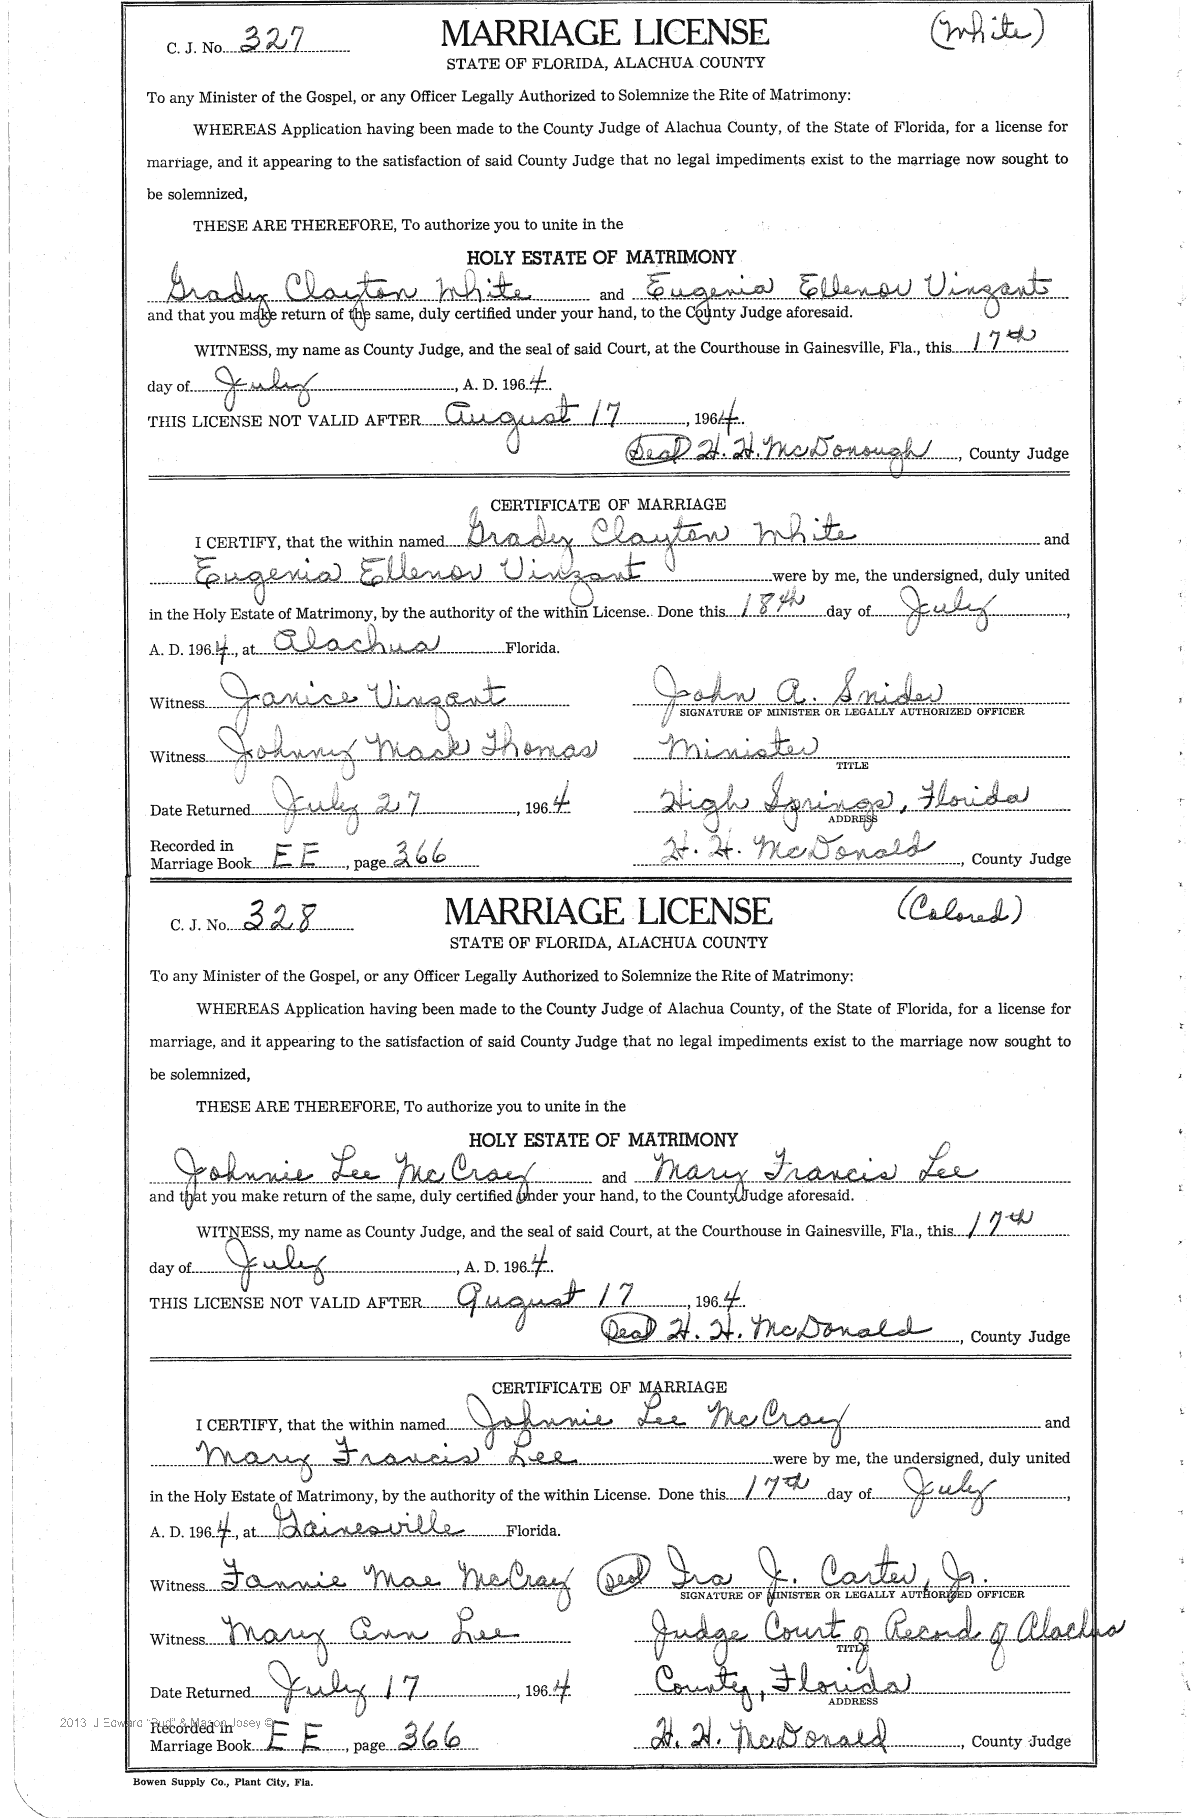 C. J. No. 327 MARRIAGE LICENSE (White)
STATE OF FLORIDA, ALACHUA COUNTY
To any Minister of the Gospel, or any Officer Legally Authorized to Solemnize the Rite of Matrimony:
WHEREAS Application having been made to the County Judge of Alachua County, of the State of Florida, for a license for
marriage, and it appearing to the satisfaction of said County Judge that no legal impediments exist to the marriage now sought to
be solemnized,
THESE ARE THEREFORE, To authorize you to unite in the
HOLY ESTATE OF MATRIMONY
Grady Clayton White and Eugenia Ellenor Vinzant
and that you make return of the same, duly certified under your hand, to the County Judge aforesaid.
WITNESS, my name as County Judge, and the seal of said Court, at the Courthouse in Gainesville, Fla., this 17th
day of July, A. D. 1964.
THIS LICENSE NOT VALID AFTER August 17, 1964.
(Seal) H. H. McDonough, County Judge
CERTIFICATE OF MARRIAGE
I CERTIFY, that the within named Grady Clayton White and
Eugenia Ellenor Vinzant were by me, the undersigned, duly united
in the Holy Estate of Matrimony, by the authority of the within License. Done this 18th day of July,
A. D. 1964, at Alachua Florida.
Witness Janice Vinzant John A. Snider
SIGNATURE OF MINISTER OR LEGALLY AUTHORIZED OFFICER
Witness Johnny Mack Thomas Minister
TITLE
Date Returned July 27, 1964 High Springs, Florida
ADDRESS
Recorded in
Marriage Book EE, page 366 H. H. McDonald, County Judge
C. J. No. 328 MARRIAGE LICENSE (Colored)
STATE OF FLORIDA, ALACHUA COUNTY
To any Minister of the Gospel, or any Officer Legally Authorized to Solemnize the Rite of Matrimony:
WHEREAS Application having been made to the County Judge of Alachua County, of the State of Florida, for a license for
marriage, and it appearing to the satisfaction of said County Judge that no legal impediments exist to the marriage now sought to
be solemnized,
THESE ARE THEREFORE, To authorize you to unite in the
HOLY ESTATE OF MATRIMONY
Johnnie Lee McCray and Mary Francis Lee
and that you make return of the same, duly certified under your hand, to the County Judge aforesaid.
WITNESS, my name as County Judge, and the seal of said Court, at the Courthouse in Gainesville, Fla., this 17th
day of July, A. D. 1964.
THIS LICENSE NOT VALID AFTER August 17, 1964
(Seal) H. H. McDonald, County Judge
CERTIFICATE OF MARRIAGE
I CERTIFY, that the within named Johnnie Lee McCray and
Mary Francis Lee were by me, the undersigned, duly united
in the Holy Estate of Matrimony, by the authority of the within License. Done this 17th day of July,
A. D. 1964, at Gainesville Florida.
Witness Fannie Mae McCray (Seal) Ira J. Carter, Jr.
SIGNATURE OF MINISTER OR LEGALLY AUTHORIZED OFFICER
Witness Mary Ann Lee Judge Court of Record of Alachua
TITLE
Date Returned July 17, 1964 County, Florida
ADDRESS
2013 J Edward "Bud" & Mason Josey ©
Recorded in
Marriage Book EE, page 366 H. H. McDonald, County Judge
Bowen Supply Co., Plant City, Fla.